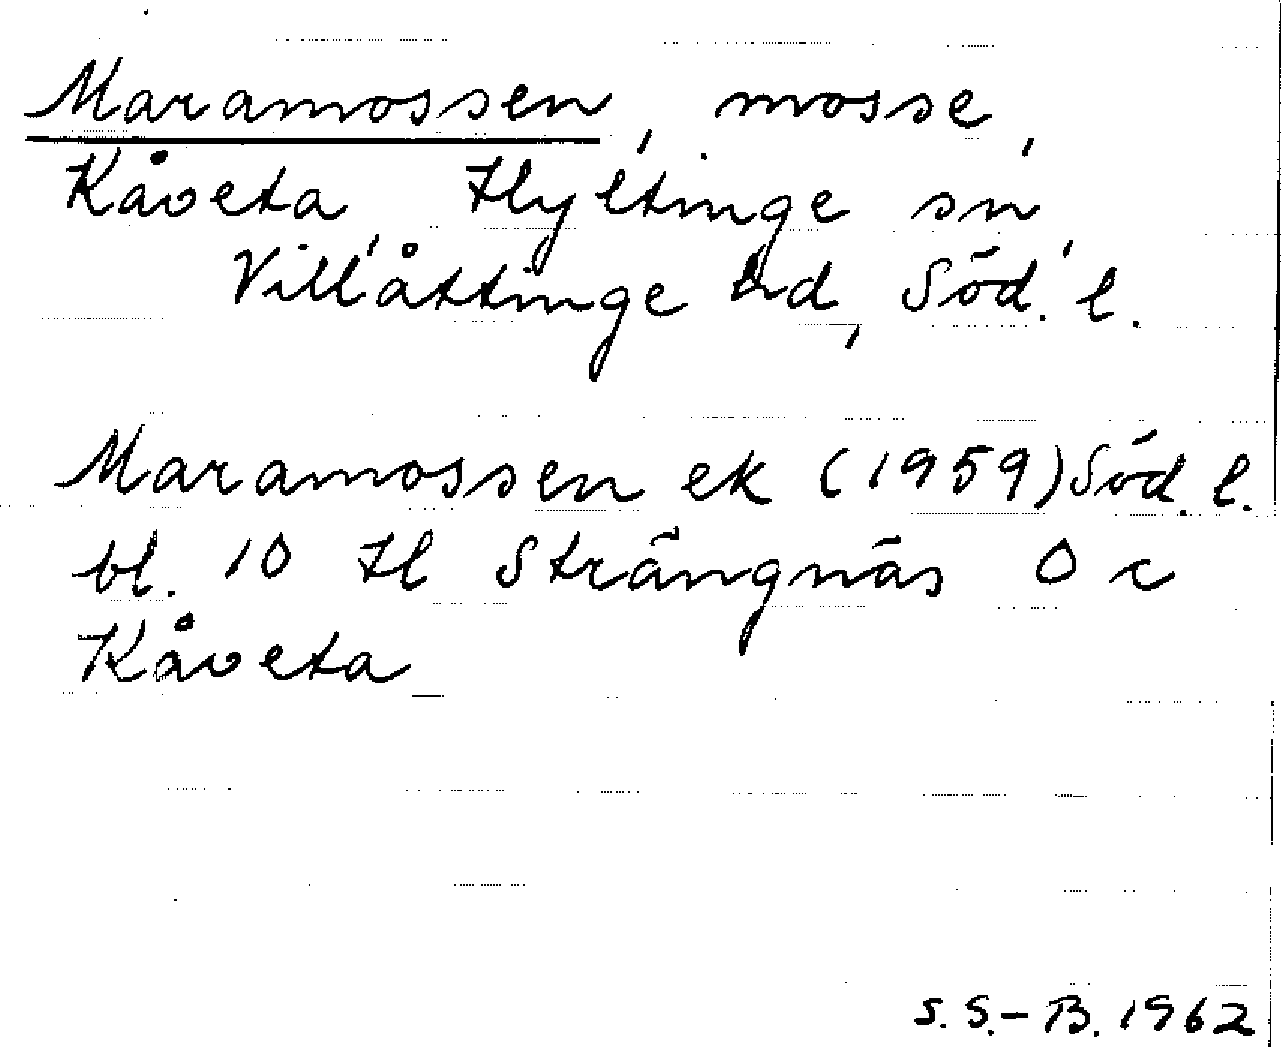 Maramossen, mosse,
Kåveta, Hyltinge sn,
Villåttinge hd, Söd. l.
Maramossen ek (1959) Söd. l.
bl. 10 H Strängnäs O c
Kåveta
S. S.-B. 1962